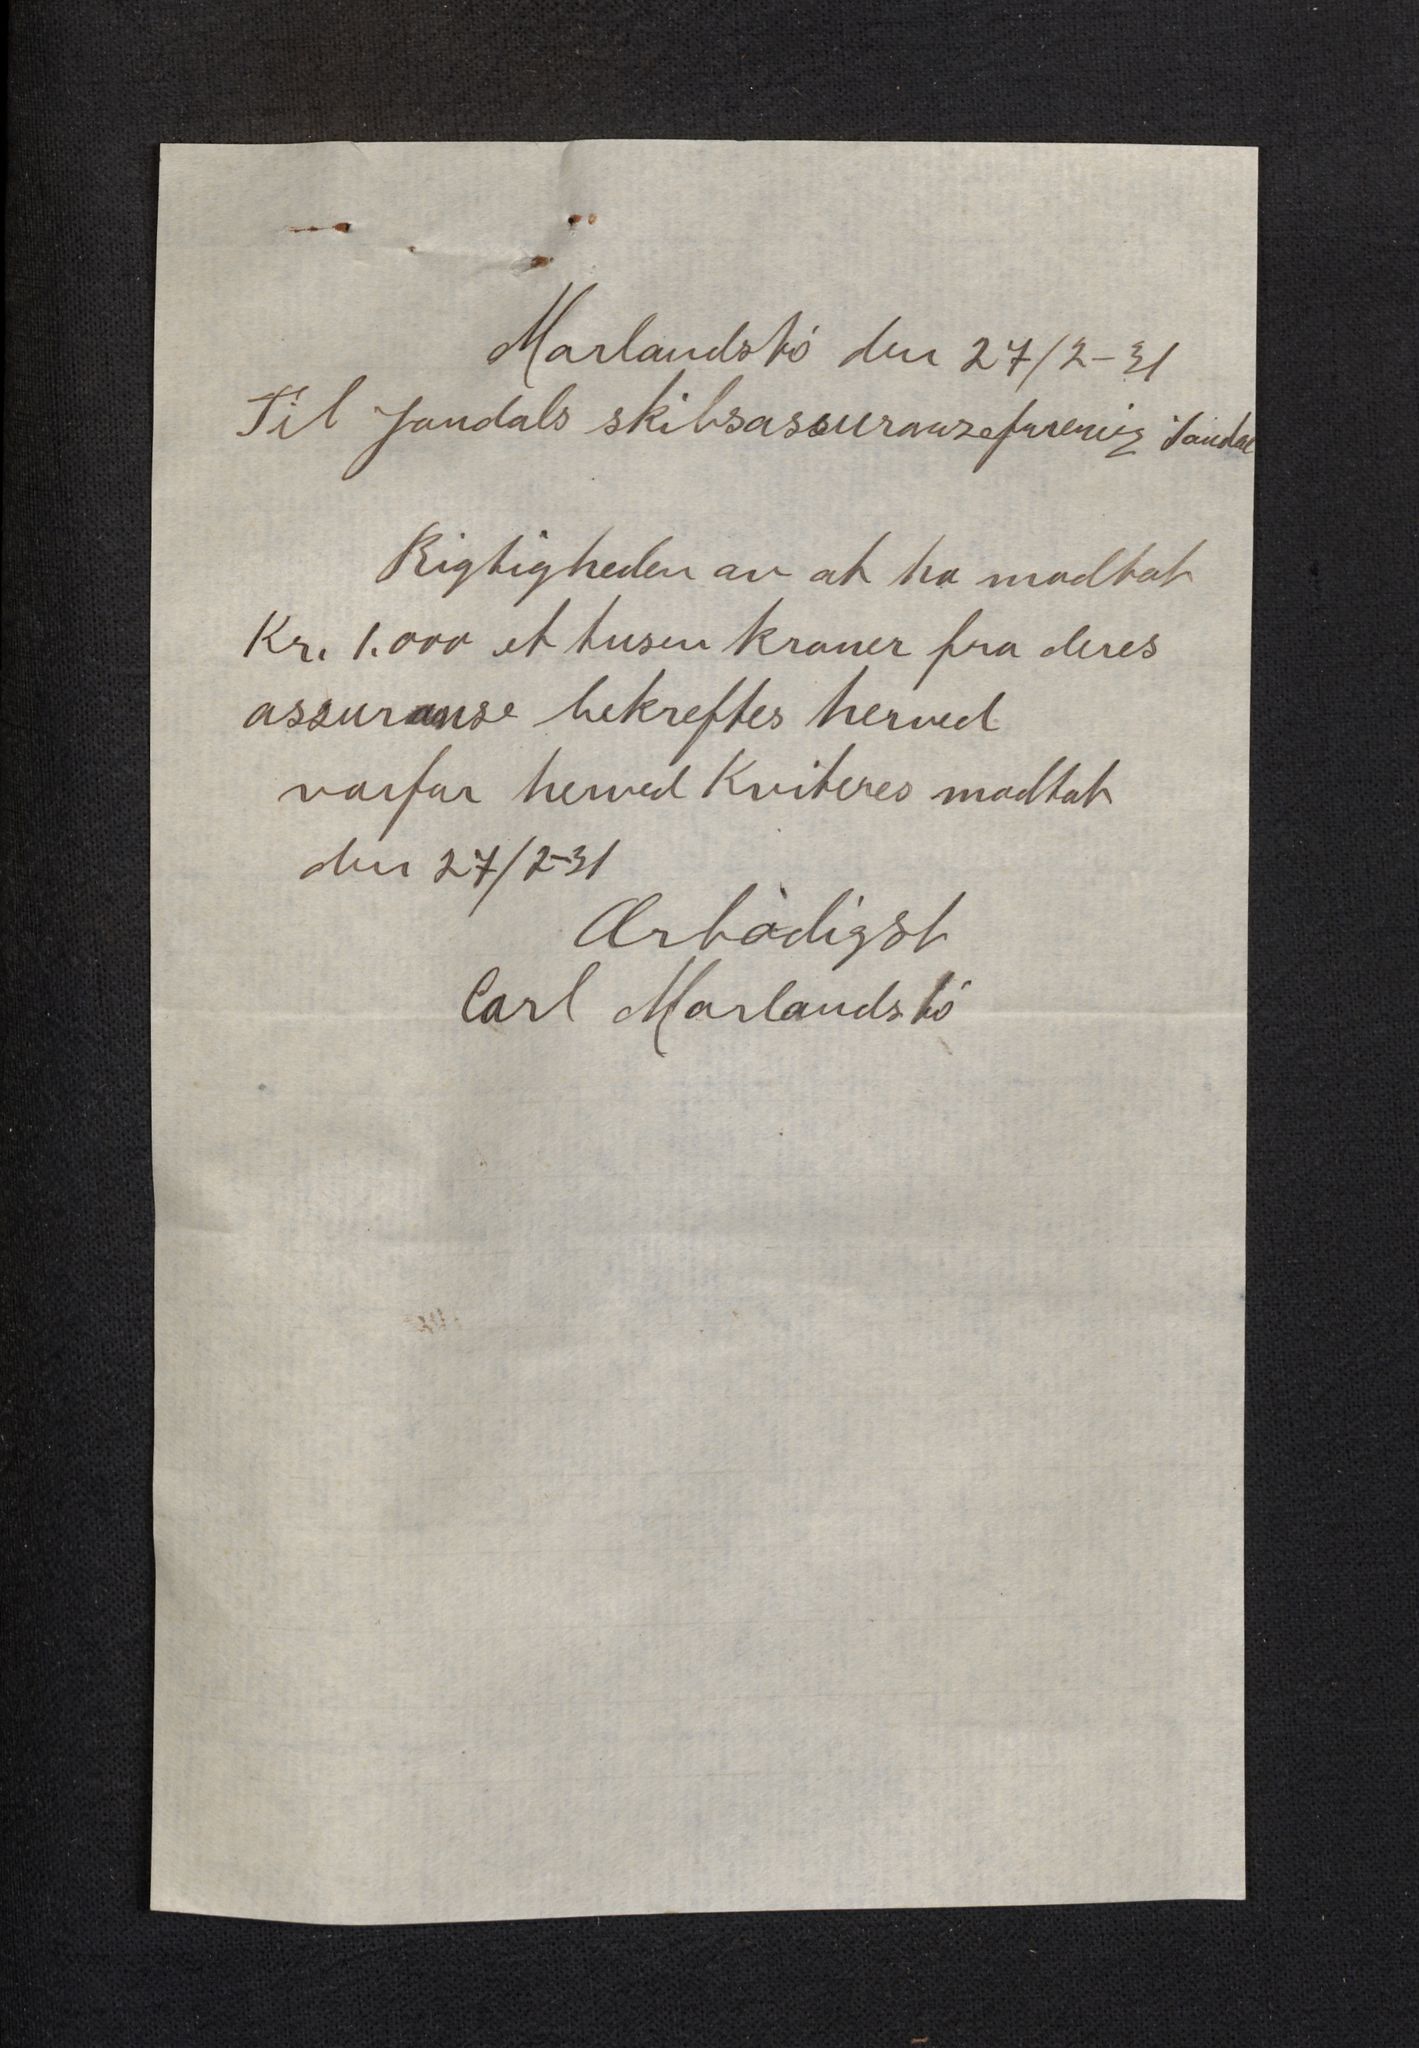 Marlandstö den 27/2-31
Til Jondals skibsassuranseforening Jondal
Rigtigheden av at ha modtat
Kr. 1.000 et tusen kroner fra deres
assuranse bekreftes herved
vorfor herved Kviteres modtat
den 27/2-31
Ærbödigst
Carl Marlandstö